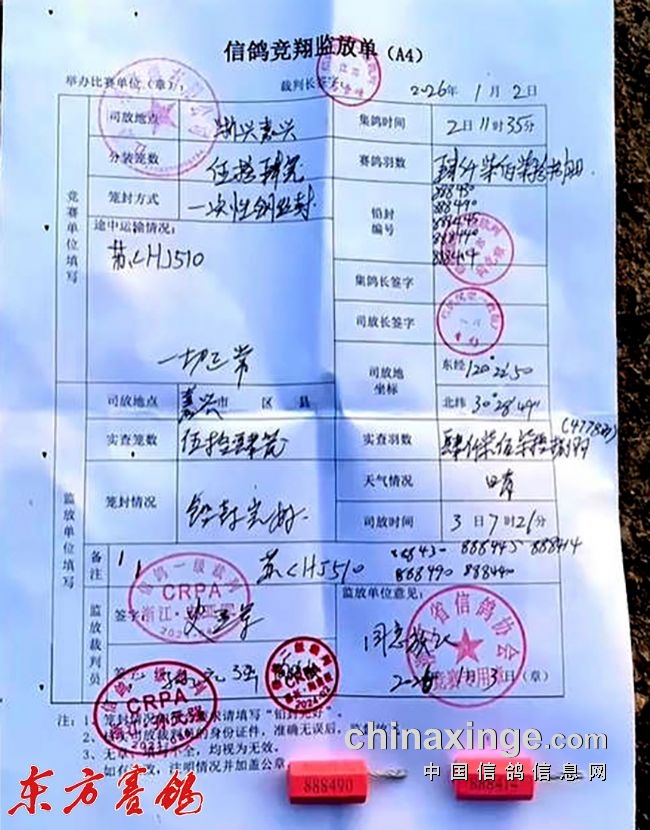 信鸽竞翔监放单(A4)
举办比赛单位(章):
裁判长签字
2026年 1月 2日
司放地点 浙兴嘉兴 集鸽时间 2日11时35分
分装笼数 伍拾肆笼 赛鸽羽数 肆仟柒佰柒拾捌羽
笼封方式 一次性钢丝封 铅封编号
888430
888490
888445
888440
888414
竞赛单位填写
途中运输情况:
苏CHJ510
一切正常
集鸽长签字
司放长签字
司放地坐标 东经 120°22′50
北纬 30°28′49″
司放地点 嘉兴市 区 县
(4778羽)
实查笼数 伍拾肆笼 实查羽数 肆仟柒佰柒拾捌羽
天气情况 晴
笼封情况 铅封完好 司放时间 3日7时26分
监放单位填写
备注 苏CHJ510 888430 888445 888414
888490 888440
监放裁判员
签字
监放单位意见:
同意放飞
2026年1月3日(章)
信鸽一级裁判
CRPA
浙江
省信鸽协会
竞赛专用章
信鸽一级裁判
CRPA
注:1、笼封情况 要求请填写"铅封完好"。
2、 放裁判员的身份证件,准确无误后,
3、无章 全,均视为无效。
如有 改,注明情况并加盖公章
chinaxinge.com
中国信鸽信息网
东方赛鸽
888490
888414